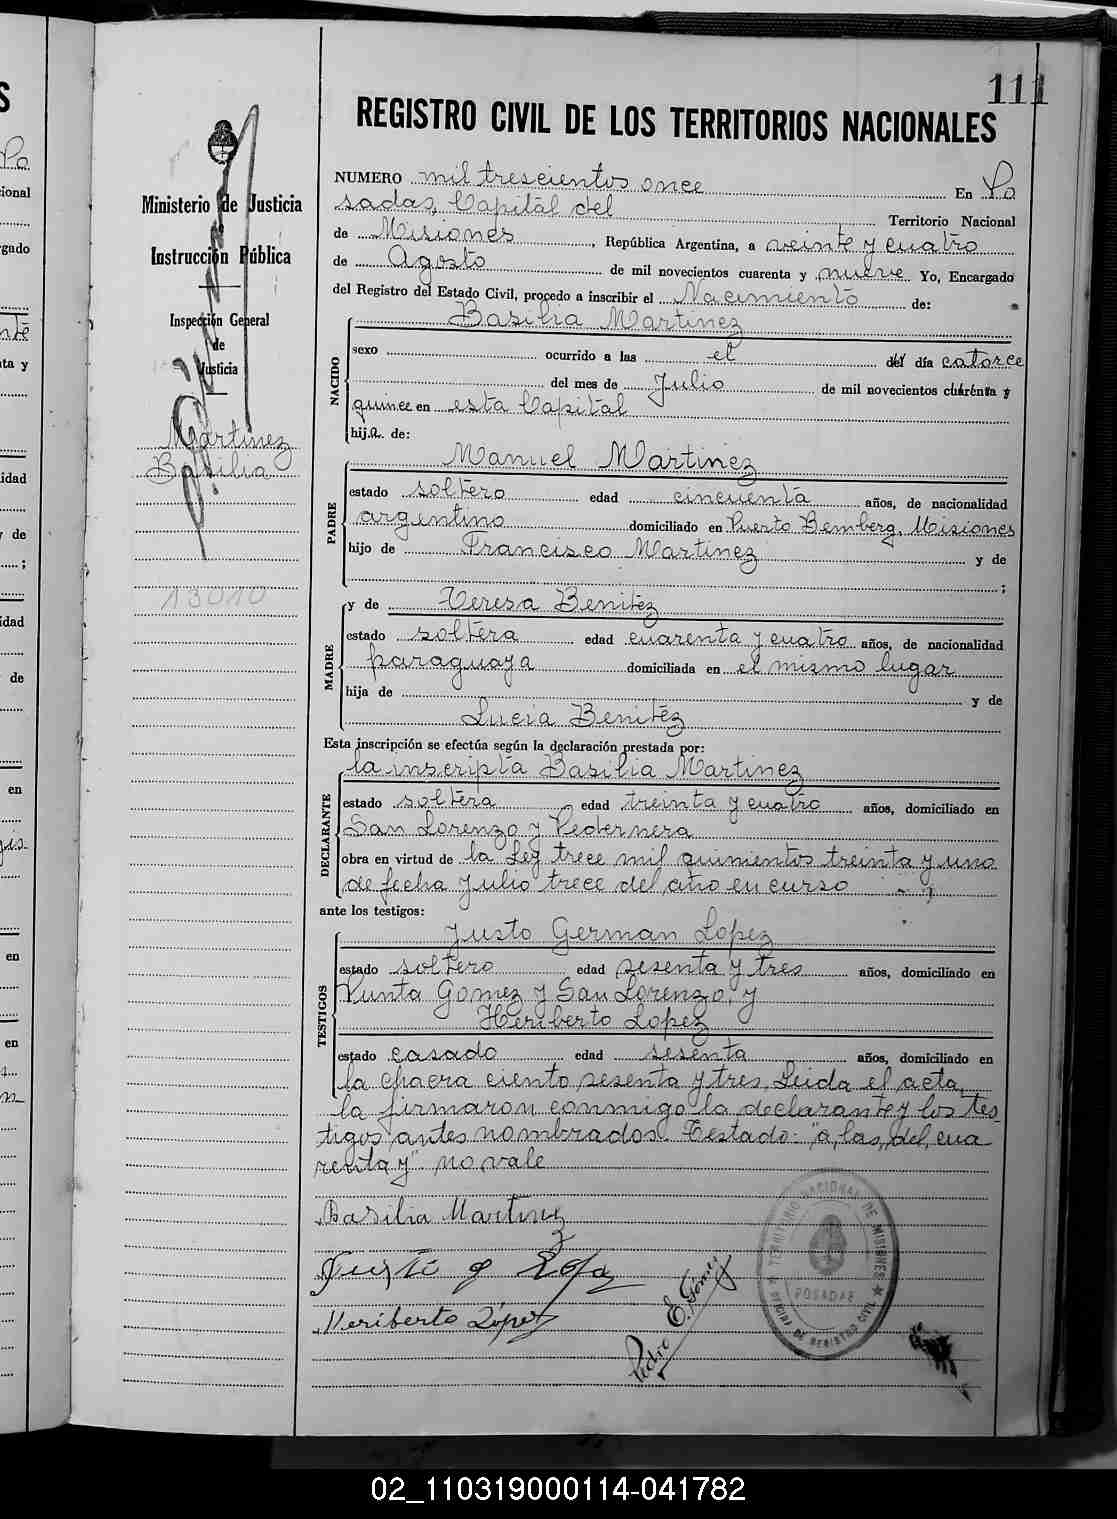 111
REGISTRO CIVIL DE LOS TERRITORIOS NACIONALES
Ministerio de Justicia
Instrucción Pública
Inspección General
de
Justicia
Martinez
Basilia
13010
NUMERO mil trescientos once En Po
sadas, Capital del Territorio Nacional
de Misiones, República Argentina, a veinte y cuatro
de Agosto de mil novecientos cuarenta y nueve Yo, Encargado
del Registro del Estado Civil, procedo a inscribir el Nacimiento de:
NACIDO
Basilia Martinez
sexo ocurrido a las el del día catorce
del mes de Julio de mil novecientos cuarenta y
quince en esta Capital
hija de:
PADRE
Manuel Martinez
estado soltero edad cincuenta años, de nacionalidad
argentino domiciliado en Puerto Bemberg, Misiones
hijo de Francisco Martinez y de
;
MADRE
y de Teresa Benitez
estado soltera edad cuarenta y cuatro años, de nacionalidad
paraguaya domiciliada en el mismo lugar
hija de y de
Lucia Benitez
Esta inscripción se efectúa según la declaración prestada por:
DECLARANTE
la inscripta Basilia Martinez
estado soltera edad treinta y cuatro años, domiciliado en
San Lorenzo y Pedernera
obra en virtud de la Ley trece mil quinientos treinta y uno
de fecha Julio trece del año en curso
ante los testigos:
TESTIGOS
Justo German Lopez
estado soltero edad sesenta y tres años, domiciliado en
Punta Gomez y San Lorenzo, y
Heriberto Lopez
estado casado edad sesenta años, domiciliado en
la chacra ciento sesenta y tres. Leida el acta,
la firmaron conmigo la declarante y los tes
tigos antes nombrados. Testado: "a, las, del, cua
renta, y" no vale
Basilia Martinez
Justo G Lopez
Heriberto López
Pedro E. Gómez
TERRITORIO NACIONAL DE MISIONES
POSADAS
OFICINA DE REGISTRO CIVIL
02_110319000114-041782